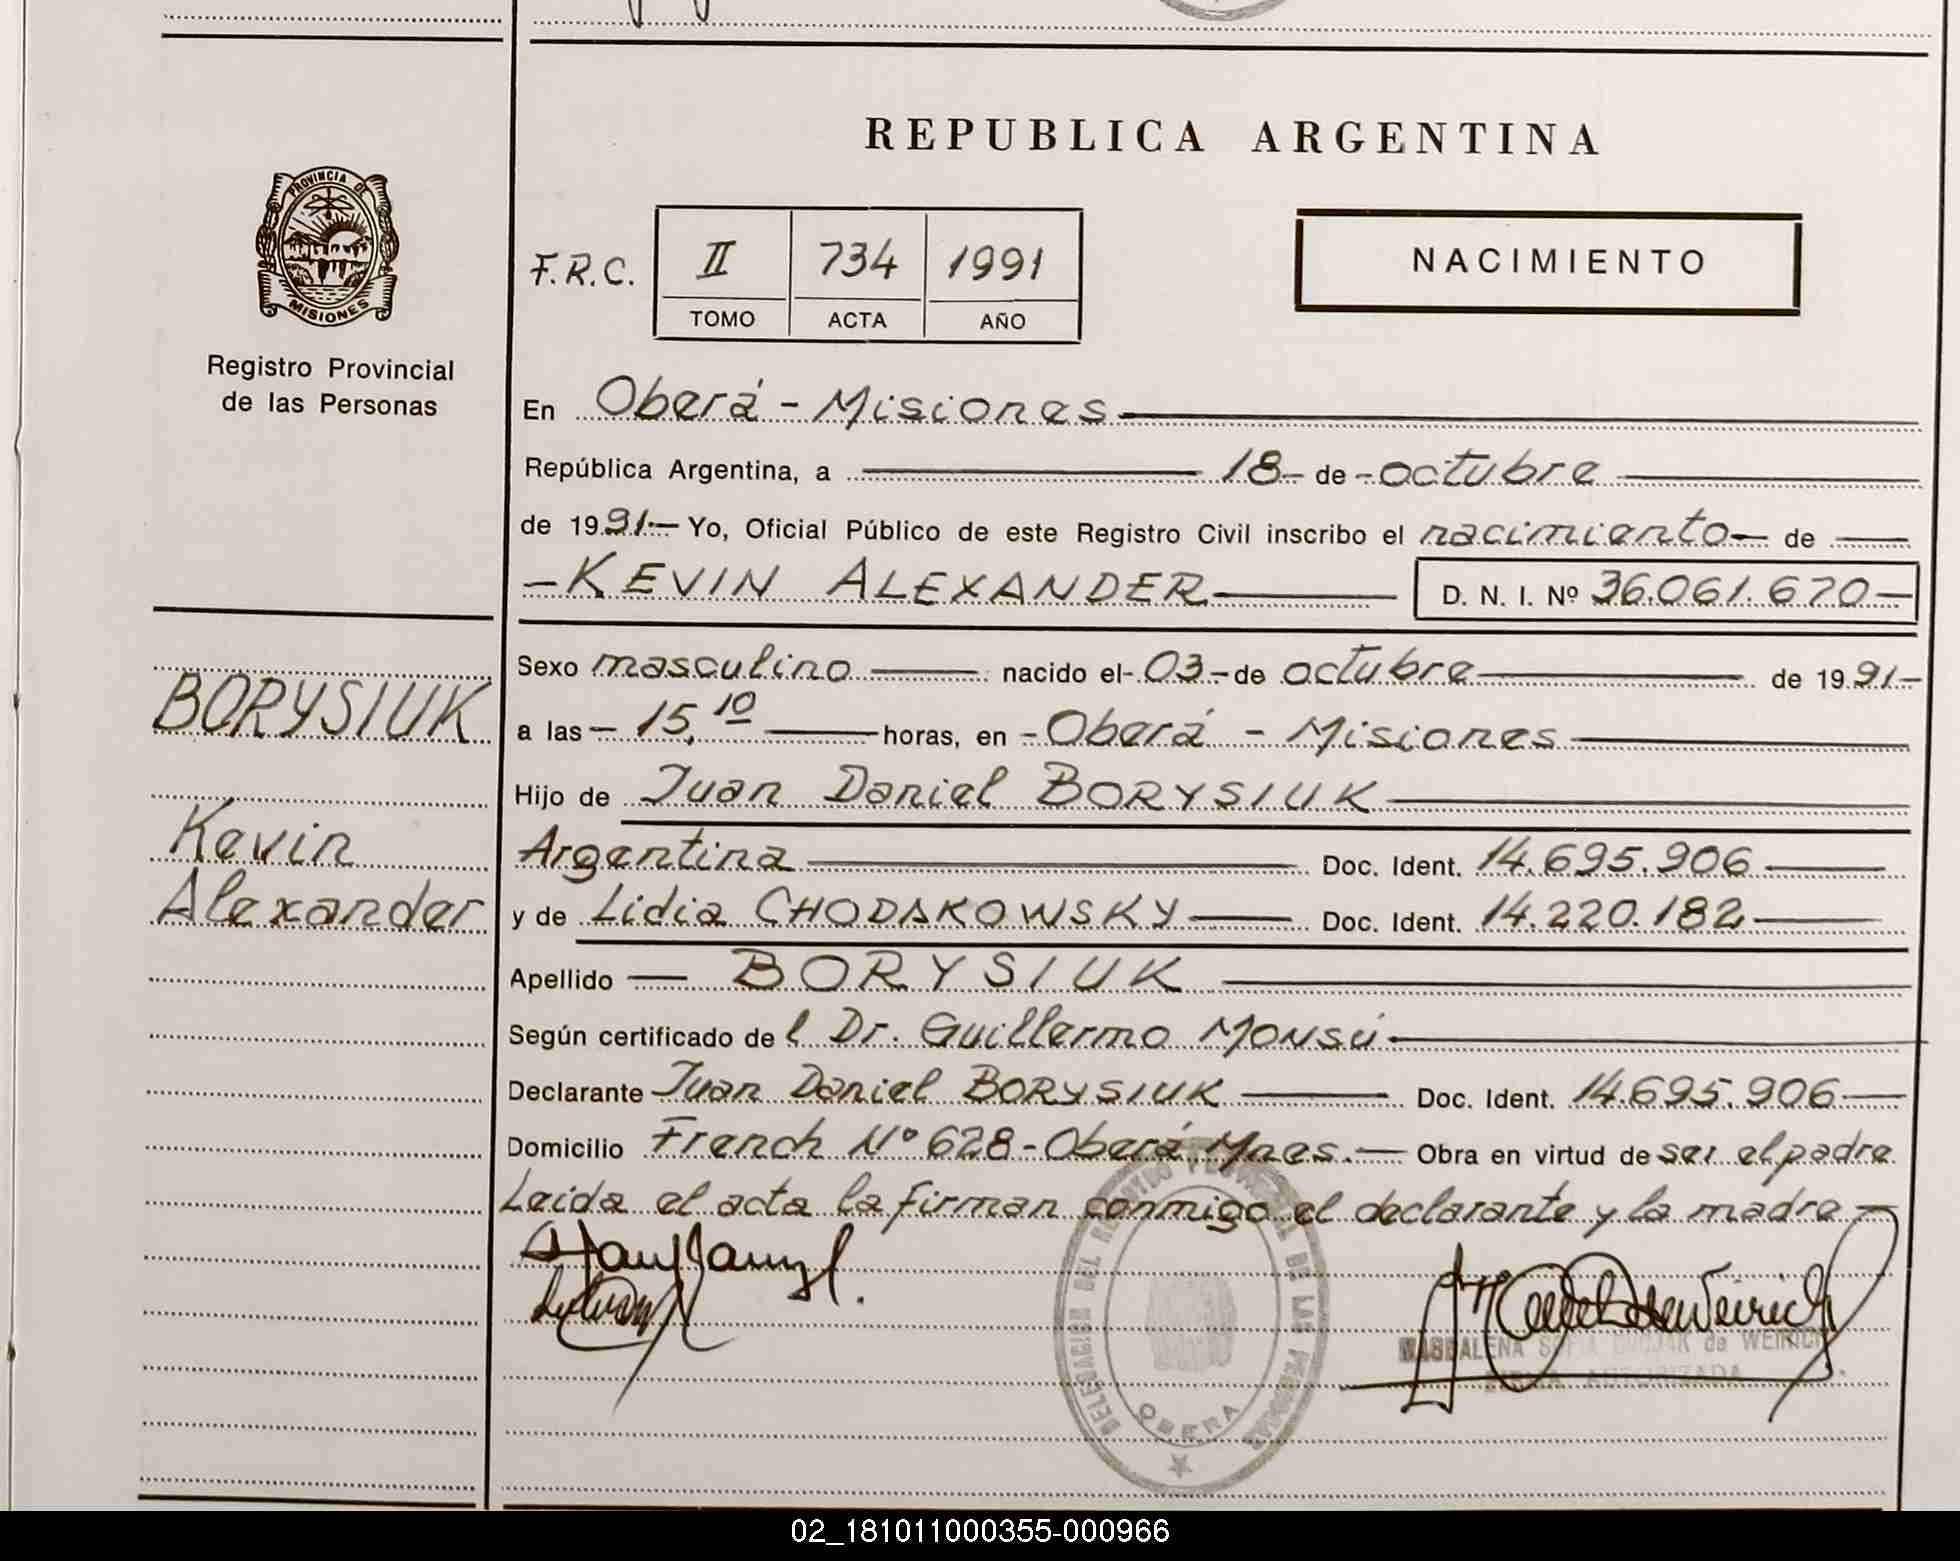 REPUBLICA ARGENTINA
PROVINCIA DE
MISIONES
Registro Provincial
de las Personas
F.R.C. II 734 1991
TOMO ACTA AÑO
NACIMIENTO
En Oberá - Misiones
República Argentina, a 18 - de - octubre
de 1991.- Yo, Oficial Público de este Registro Civil inscribo el nacimiento - de
- KEVIN ALEXANDER D. N. I. Nº 36.061.670 -
BORYSIUK
Kevin
Alexander
Sexo masculino nacido el - 03 - de octubre de 1991 -
a las - 15,10 horas, en - Oberá - Misiones
Hijo de Juan Daniel BORYSIUK
Argentina Doc. Ident. 14.695.906
y de Lidia CHODAKOWSKY Doc. Ident. 14.220.182
Apellido BORYSIUK
Según certificado de l Dr. Guillermo MONSÚ
Declarante Juan Daniel BORYSIUK Doc. Ident. 14.695.906
Domicilio French Nº 628 - Oberá Mnes. - Obra en virtud de ser el padre
Leída el acta la firman conmigo el declarante y la madre
DELEGACION DEL REGISTRO PROVINCIAL DE LAS PERSONAS
OBERA
MAGDALENA SOFIA de WEIRICH
FIRMA AUTORIZADA
02_181011000355-000966